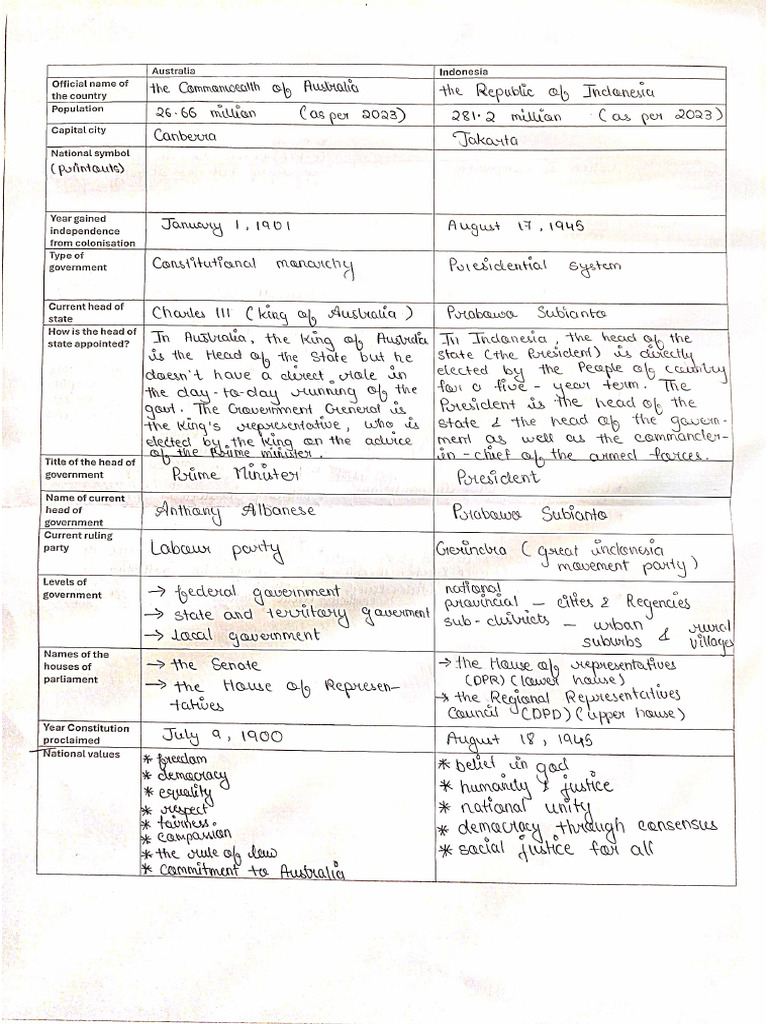 Australia Indonesia
Official name of the country the Commonwealth of Australia the Republic of Indonesia
Population 26.66 million (as per 2023) 281.2 million (as per 2023)
Capital city Canberra Jakarta
National symbol
(printouts)
Year gained independence from colonisation January 1, 1901 August 17, 1945
Type of government Constitutional monarchy Presidential system
Current head of state Charles III (King of Australia) Prabowo Subianto
How is the head of state appointed?
In Australia, the King of Australia
is the Head of the State but he
doesn't have a direct role in
the day-to-day running of the
govt. The Government General is
the King's representative, who is
elected by the King on the advice
of the Prime minister.
In Indonesia, the head of the
state (the President) is directly
elected by the People of country
for a five-year term. The
President is the head of the
state & the head of the govern-
ment as well as the commander-
in-chief of the armed forces.
Title of the head of government Prime Minister President
Name of current head of government Anthony Albanese Prabowo Subianto
Current ruling party Labour party Gerindra (great indonesia
movement party)
Levels of government
→ federal government
→ state and territory goverment
→ local government
national
provincial – cities & Regencies
sub-districts – urban & rural
suburbs villages
Names of the houses of parliament
→ the Senate
→ the House of Represen-
tatives
→ the House of representatives
(DPR) (lower house)
→ the Regional Representatives
Council (DPD) (upper house)
Year Constitution proclaimed July 9, 1900 August 18, 1945
National values
* freedom
* democracy
* equality
* respect
* fairness.
* compassion
* the rule of law
* commitment to Australia
* belief in god
* humanity & justice
* national unity
* democracy through consensus
* social justice for all